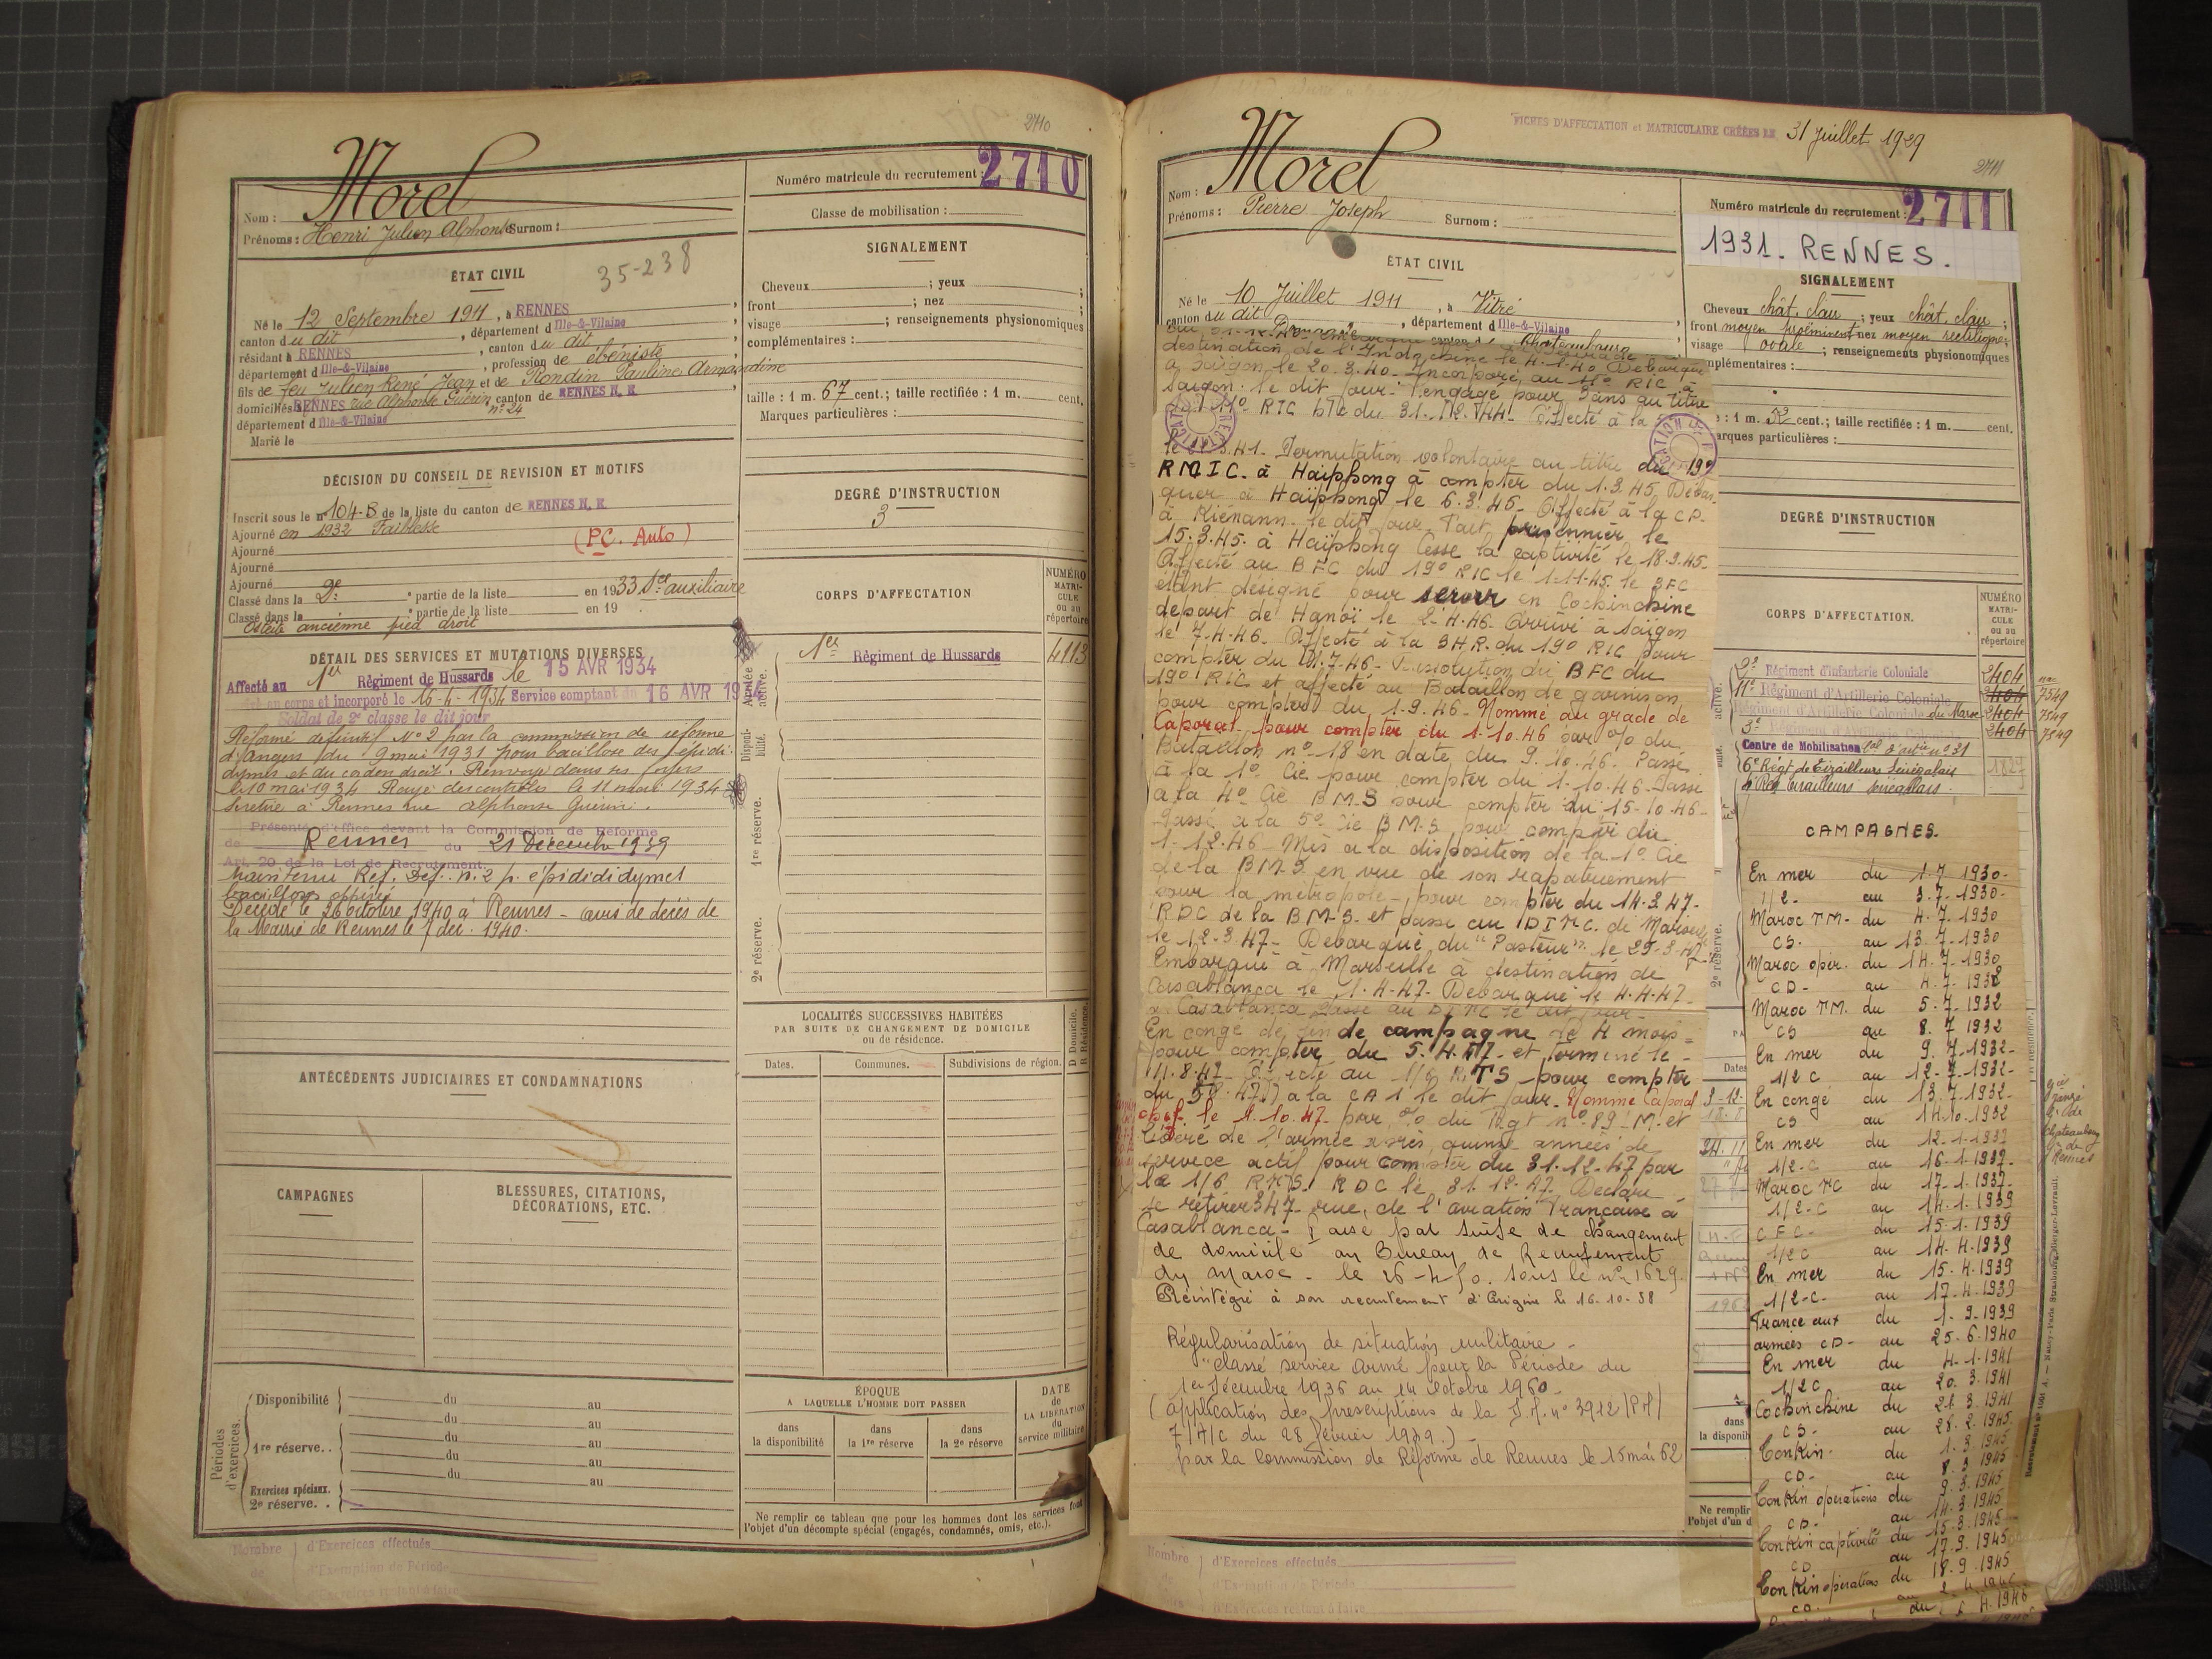 2710
Morel
Nom :
Prénoms : Henri Julien Alphonse Surnom :
Numéro matricule du recrutement : 2710
Classe de mobilisation :
ÉTAT CIVIL
35-238
Né le 12 Septembre 1911, à RENNES
canton du dit, département d Ille-&-Vilaine
résidant à RENNES, canton du dit
département d Ille-&-Vilaine, profession de ébéniste
fils de feu Julien René Jean et de Rondin Pauline Armandine
domiciliés à RENNES rue Alphonse Guérin n° 24 canton de RENNES N. E.
département d Ille-&-Vilaine
Marié le
SIGNALEMENT
Cheveux ; yeux ;
front ; nez ;
visage ; renseignements physionomiques
complémentaires :
taille : 1 m. 67 cent.; taille rectifiée : 1 m. cent.
Marques particulières :
DÉCISION DU CONSEIL DE REVISION ET MOTIFS
Inscrit sous le n° 104-B de la liste du canton de RENNES N. E.
Ajourné en 1932 Faiblesse
(P.C. Auto)
Ajourné
Ajourné
Ajourné
Classé dans la 2e partie de la liste en 1933 Sce auxiliaire
Classé dans la partie de la liste en 19
Ostéite ancienne pied droit
DEGRÉ D'INSTRUCTION
3
DÉTAIL DES SERVICES ET MUTATIONS DIVERSES
Affecté au 1er Régiment de Hussards le 15 AVR 1934
au corps et incorporé le 16-4-1934 Service comptant du 16 AVR 1934
Soldat de 2e classe le dit jour
Réformé définitif N° 2 par la commission de réforme
d'Angers du 9 mai 1931 pour bacillose des épidi-
dymes et du cordon droit. Renvoyé dans ses foyers
le 10 mai 1934 Rayé des contrôles le 11 mai 1934
Se retire à Rennes rue Alphonse Guérin.
Présenté d'office devant la Commission de Réforme
de Rennes du 21 Décembre 1939
Art. 20 de la Loi de Recrutement.
Maintenu Réf. Déf. n. 2 p. épididymes
Décédé le 26 octobre 1940 à Rennes - avis de décès de
la Mairie de Rennes le 7 déc. 1940.
CORPS D'AFFECTATION
NUMÉRO MATRICULE ou au répertoire
Armée active.
1er Régiment de Hussards 4113
Disponibilité.
1re réserve.
2e réserve.
ANTÉCÉDENTS JUDICIAIRES ET CONDAMNATIONS
LOCALITÉS SUCCESSIVES HABITÉES
PAR SUITE DE CHANGEMENT DE DOMICILE
ou de résidence.
Dates. Communes. Subdivisions de région. D Domicile. R Résidence.
CAMPAGNES
BLESSURES, CITATIONS,
DÉCORATIONS, ETC.
Périodes d'exercices.
Disponibilité du au
1re réserve. . du au
du au
du au
Exercices spéciaux. du au
2e réserve. .
ÉPOQUE
A LAQUELLE L'HOMME DOIT PASSER
dans la disponibilité
dans la 1re réserve
dans la 2e réserve
DATE de LA LIBÉRATION du service militaire
Ne remplir ce tableau que pour les hommes dont les services font
l'objet d'un décompte spécial (engagés, condamnés, omis, etc.).
Nombre d'Exercices effectués
de d'Exemption de Période
d'Exercices restant à faire
FICHES D'AFFECTATION et MATRICULAIRE CRÉÉES LE 31 Juillet 1929
2711
Morel
Nom :
Prénoms : Pierre Joseph Surnom :
Numéro matricule du recrutement : 2711
1931. RENNES.
ÉTAT CIVIL
Né le 10 Juillet 1911, à Vitré
canton du dit, département d Ille-&-Vilaine
SIGNALEMENT
Cheveux chât. clair ; yeux chât. clair ;
front moyen proéminent nez moyen rectiligne ;
visage ovale ; renseignements physionomiques
complémentaires :
1 m. cent.; taille rectifiée : 1 m. cent.
Marques particulières :
destination de l'Indochine le 4-1-40 Débarqué
à Saïgon le 20.3.40. Incorporé au 11° RIC à
Saïgon le dit jour. Rengagé pour 3 ans au titre
Affecté à la
Permutation volontaire au titre du 19°
RMIC. à Haïphong à compter du 1.3.45. Débar-
qué à Haïphong le 6.3.45. Affecté à la CD.
à Kiénann le dit jour. Fait prisonnier le
15.3.45. à Haïphong Cesse la captivité le 18.9.45.
Affecté au BFC du 19° RIC le 1-11-45. le BFC
étant désigné pour servir en Cochinchine
départ de Hanoï le 2-4-46. Arrivé à Saïgon
le 7-4-46. Affecté à la BHR. du 19° RIC pour
compter du 1.7-46 - Dissolution du BFC du
19° RIC et affecté au Bataillon de garnison
pour compter du 1-9.46 - Nommé au grade de
Caporal pour compter du 1-10.46 par % du
Bataillon n° 18 en date du 9.10.46. Passé
à la 1° Cie pour compter du 1-10.46 Passé
à la 4° Cie B.M.S pour compter du 15-10.46-
Passé à la 5° Cie B.M.S pour compter du
1-12.46 Mis à la disposition de la 1° Cie
de la B.M.S. en vue de son rapatriement
pour la métropole, pour compter du 14.3.47-
RDC de la B.M.S. et passé au D.I.T.C. de Marseille
le 12-3.47- Débarqué du "Pasteur" le 29-3-47
Embarqué à Marseille à destination de
Casablanca le 1-4-47. Débarqué le 4.4.47-
à Casablanca Passé au DITC le dit jour -
En congé de fin de campagne de 4 mois
pour compter du 5.4.47- et terminé le
4.8.47- Affecté au 1/6 RTS pour compter
du 5.8.47 à la CA1 le dit jour. Nommé Caporal
chef le 1.10.47 par % du Rgt n° 89/M. et
libéré de l'armée après quinze années de
service actif pour compter du 31.12.47 par
le 1/6 RTS. RDC le 31.12.47 Déclare
se retirer 347 rue, de l'aviation Française à
Casablanca - Passé par suite de changement
de domicile au Bureau de Recrutement
du Maroc - le 26-4-50. sous le n° 1629.
Réintégré à son recrutement d'Origine le 16-10-58
Régularisation de situation militaire -
"classé service armé pour la Période du
1er Décembre 1936 au 14 Octobre 1960 -
(application des prescriptions de la I.M. n° 3912/PM/
7/A/C du 28 février 1949.) -
par la Commission de Réforme de Rennes le 15 mai 62
DEGRÉ D'INSTRUCTION
CORPS D'AFFECTATION.
NUMÉRO MATRICULE ou au répertoire
2e Régiment d'Infanterie Coloniale 2404
11e Régiment d'Artillerie Coloniale 2404 7549
Régiment d'Artillerie Coloniale du Maroc 2404 7549
3e 2404 7549
Centre de Mobilisation n° 31
6e Régt de Tirailleurs Sénégalais 1827
Tirailleurs Sénégalais.
CAMPAGNES.
En mer du 1-7 1930-
1/2- au 3.7.1930-
Maroc TM- du 4.7.1930
CS. au 13.7-1930
Maroc opér. du 14.7.1930
CD- au 4.7.1932
Maroc TM. du 5.7.1932
CS au 8.7.1932
En mer du 9.7.1932-
1/2 C au 12-7-1932-
En congé du 13.7.1932-
CS au 14.10.1932
En mer du 12-1-1937
1/2-C au 16-1.1937-
Maroc TC du 17-1.1937-
1/2-C au 14-1.1939
CFC- du 15-1.1939
1/2 C au 14.4.1939
En mer du 15.4.1939
1/2-C- au 17.4.1939
France aux du 1-9-1939
armées CD- au 25.6.1940
En mer du 4-1-1941
1/2 C au 20.3.1941
Cochinchine du 21.3.1941
CS- au 28.2.1945
Tonkin. du 1.3.1945
CD- au 8.3.1945
Tonkin opérations du 9.3.1945
CD- au 14.3.1945
Tonkin captivité du 15.3.1945
CD au 17.9.1945
Tonkin opérations du 18.9.1945
CD.
Ne remplir
l'objet d'un d
Nombre d'Exercices effectués
de d'Exemption de Période
d'Exercices restant à faire